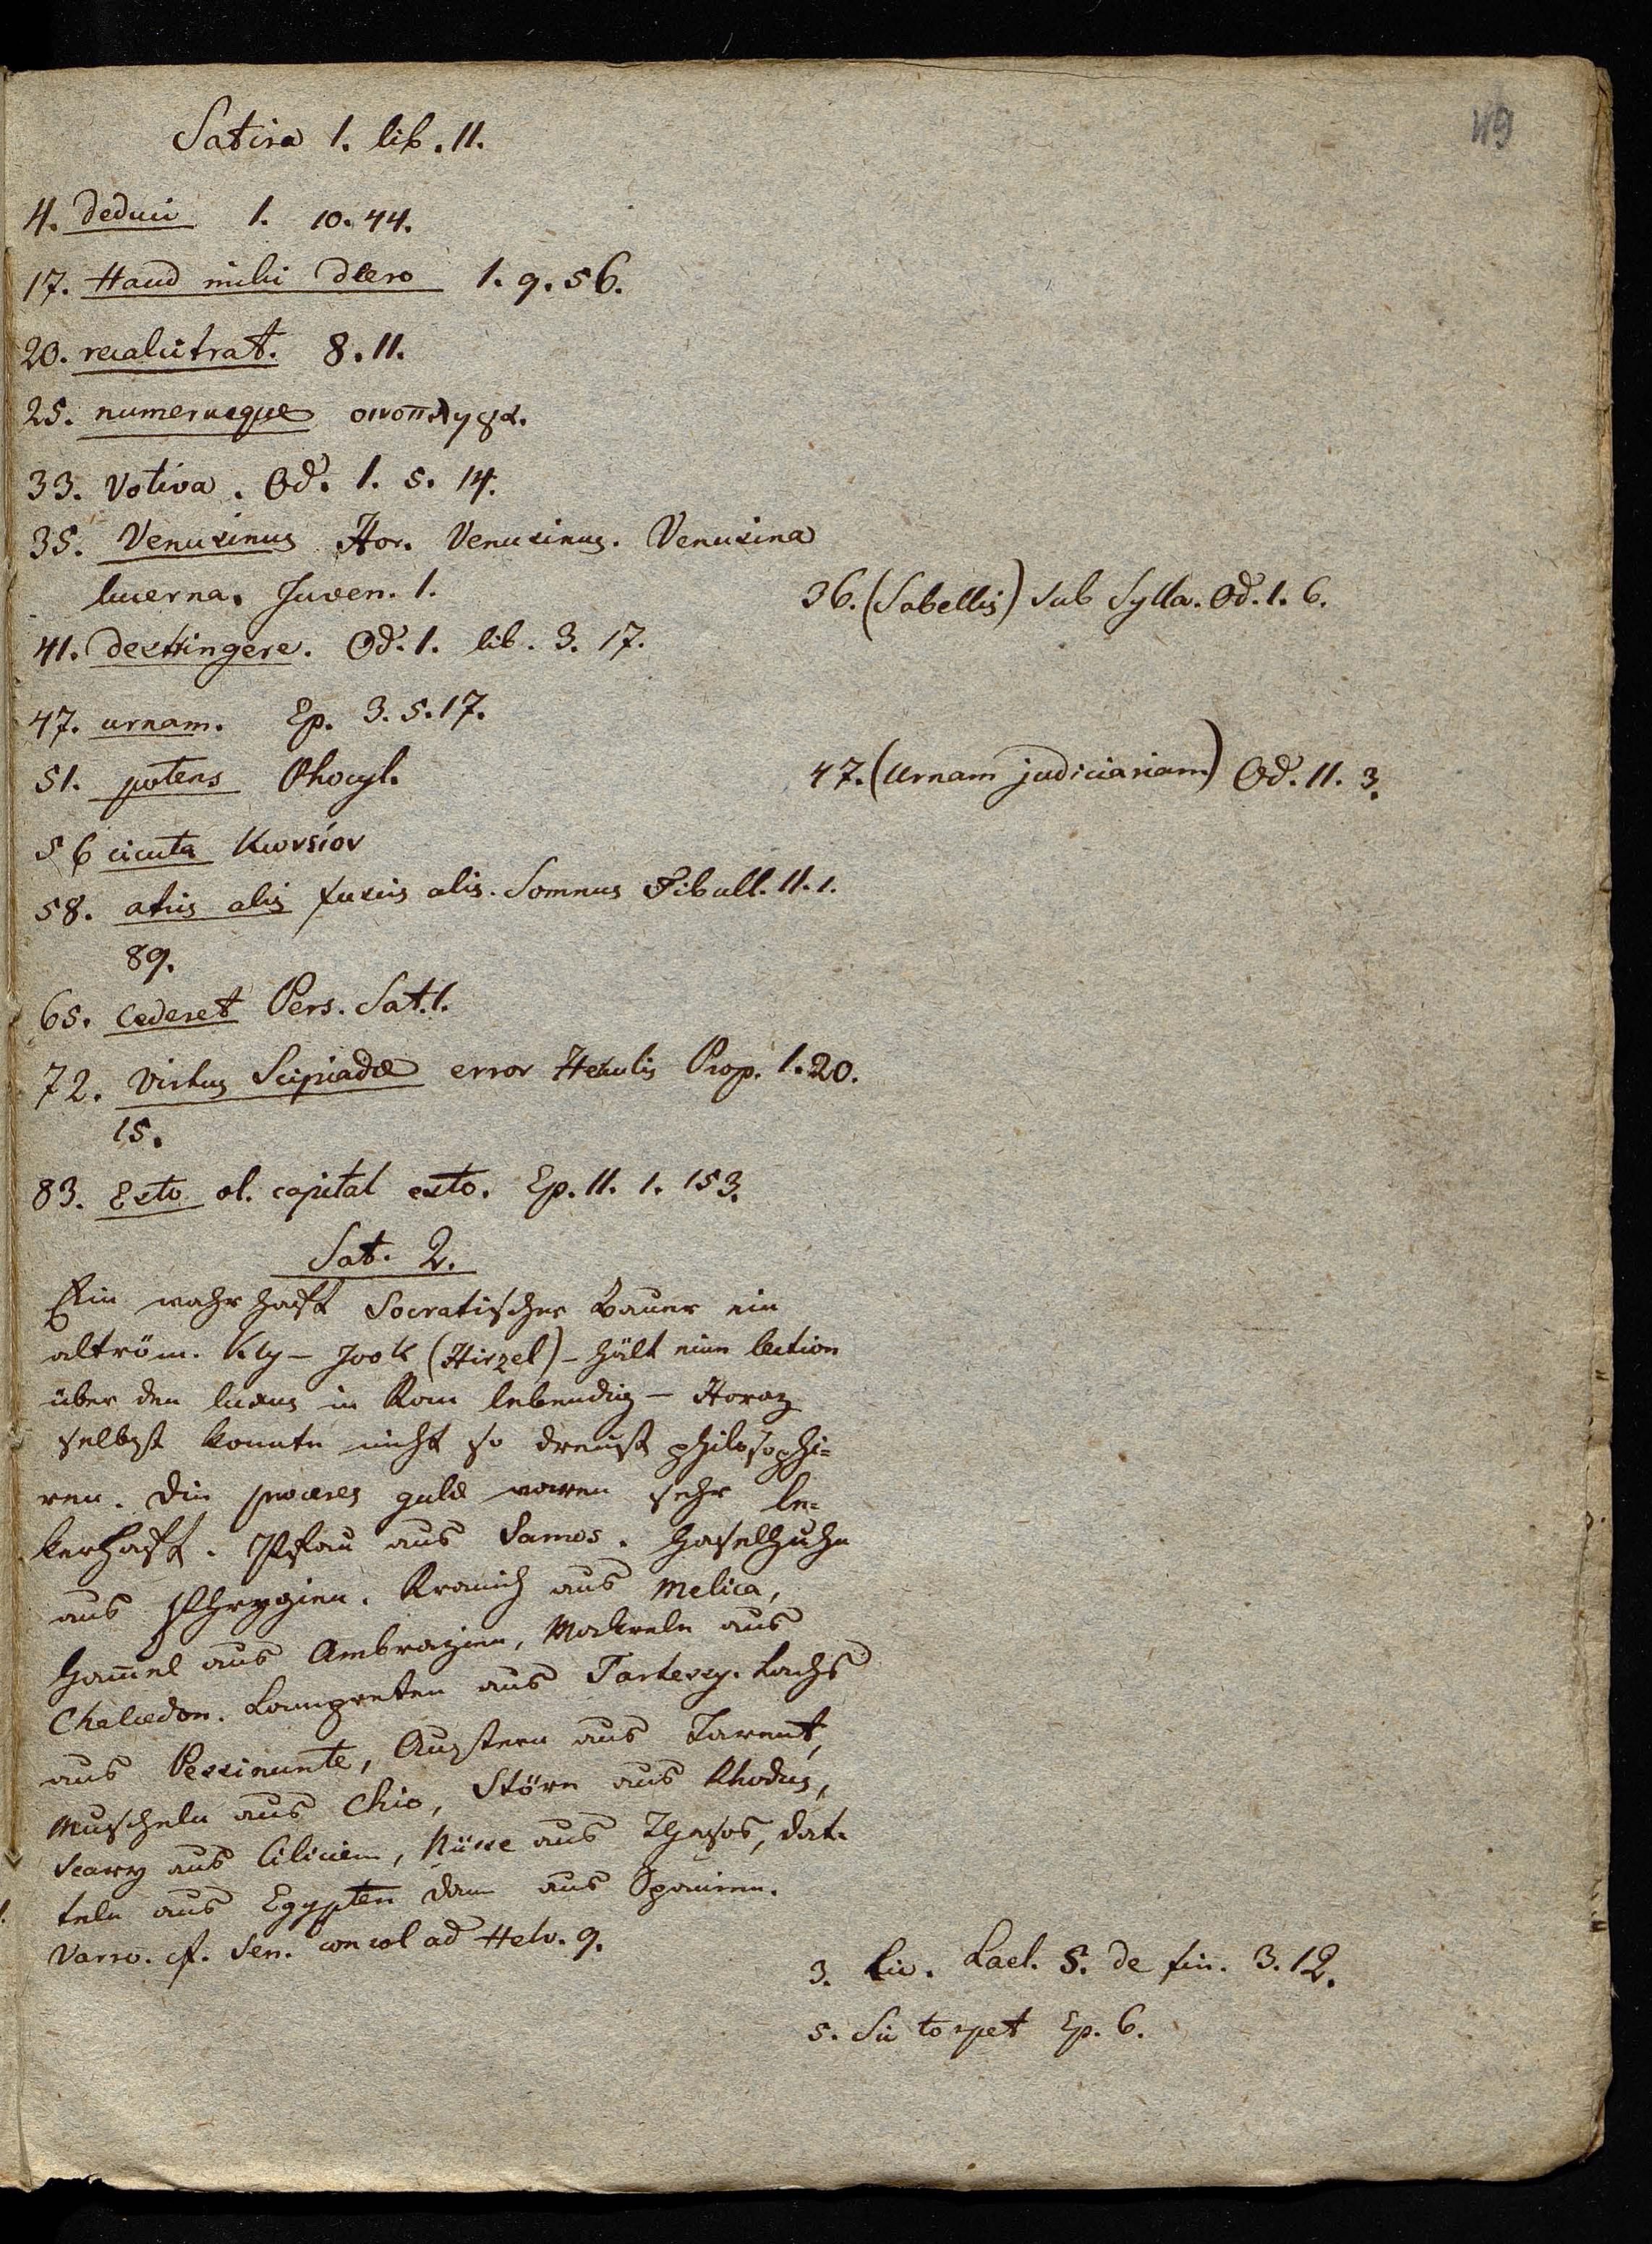 49
Satira 1. lib. II.
4. deduci 1. 10. 44.
17. Haud mihi deero 1. 9. 56.
20. recalcitrat. 8. 11.
25. numerusque
33. Votiva. Od. 1. 5. 14.
35. Venusinus Hor. Venusinus. Venusina
lucerna. Juven. 1.
36. (Sabellis) sub Sylla. Od. 1. 6.
41. destringere. Od. 1. lib. 3. 17.
47. urnam. Ep. 3. 5. 17.
47. (Urnam judiciariam) Od. II. 3.
51. potens Phocyl.
56 cicuta κωνείον
58. atris alis fuscis alis. Somnus Tibull. II. 1.
89.
65. cederet Pers. Sat. 1.
72. Virtus Scipiadæ error Herculis Prop. 1. 20.
15.
83. Esto ol. capital esto. Ep. II. 1. 153.
Sat. 2.
Ein wahrhaft Socratischer Bauer ein
altröm. Kly-Jook (Hirzel) - hält eine lection
über den luxus in Rom lebendig - Horaz
selbst konnte nicht so dreust philosophi=
ren. Die proceres gulæ waren sehr le=
kerhaft. Pfau aus Samos. Haselhuhn
aus Phrygien. Kranich aus Melica,
Hammel aus Ambracien, Makreln aus
Chalcedon. Lampreten aus Tartessus. Lachs
aus Pessinunte, Austern aus Tarent,
Muscheln aus Chio, Störe aus Rhodus,
Scarus aus Cilicien, Nüsse aus Thasos, Dat=
teln aus Egypten dann aus Spanien.
Varro. cf. Sen. consol ad Helv. 9.
3. Liv. Lael. 5. de fin. 3. 12.
5. Sic torpet Ep. 6.